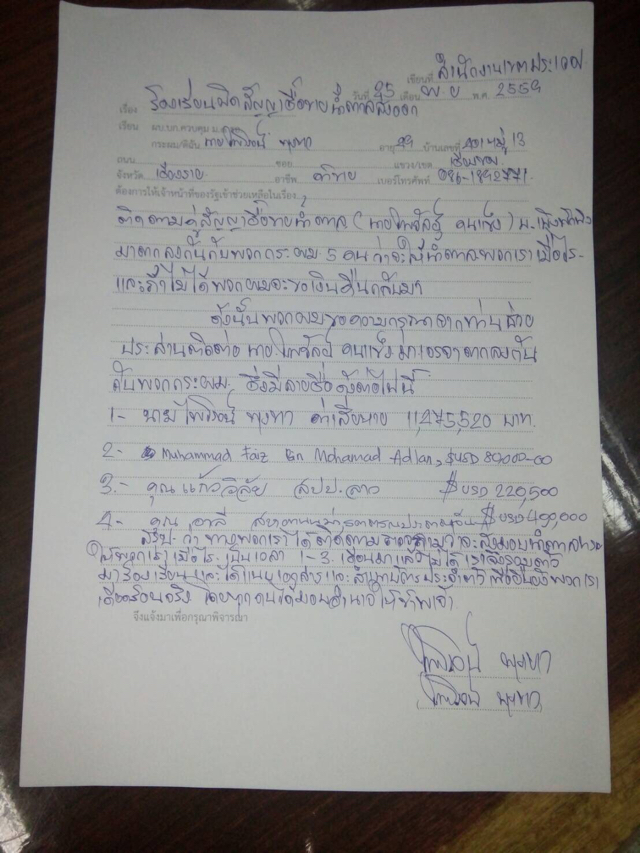 เขียนที่ สำนักงานเขตประเวศ
วันที่ 25 เดือน พ.ย พ.ศ. 2559
เรื่อง ร้องเรียนผิดสัญญาซื้อขายน้ำตาลส่งออก
เรียน ผบ.บก.ควบคุม
กระผม/ดิฉัน นายไพโรจน์ พุทธา อายุ บ้านเลขที่ หมู่ 13
ถนน ซอย แขวง/เขต
จังหวัด เชียงราย อาชีพ ค้าขาย เบอร์โทรศัพท์ 086-1842771
ต้องการให้เจ้าหน้าที่ของรัฐเข้าช่วยเหลือในเรื่อง
ติดตามคู่สัญญาซื้อขายน้ำตาล
มาตกลงกันกับพวกกระผม 5 คน ว่าจะให้น้ำตาลพวกเราเมื่อไร
และถ้าไม่ได้พวกผมจะขอเงินคืนกลับมา
ดังนั้นพวกผมขอความกรุณาจากท่านช่วย
ประสานติดต่อ มาเจรจาตกลงกัน
กับพวกกระผม ซึ่งมีรายชื่อดังต่อไปนี้
1- นายไพโรจน์ พุทธา ค่าเสียหาย 11,475,520 บาท
2- Muhammad Faiz Bin Mohamad Adlan, $USD 80000-00
3.- คุณ แก้ววิลัย สปป.ลาว $USD 220,500
4- คุณ อาลี $USD 400,000
สรุป ว่าทางพวกเราได้ติดตาม ว่าจะส่งมอบน้ำตาล
ให้พวกเราเมื่อไร เป็นเวลา 1-3 เดือน
มาร้องเรียนและได้แนบเอกสารและสำเนาบัตรประจำตัว
เดือดร้อนจริง โดยทุกคนได้มอบอำนาจให้ข้าพเจ้า
จึงแจ้งมาเพื่อกรุณาพิจารณา
ไพโรจน์ พุทธา
ไพโรจน์ พุทธา